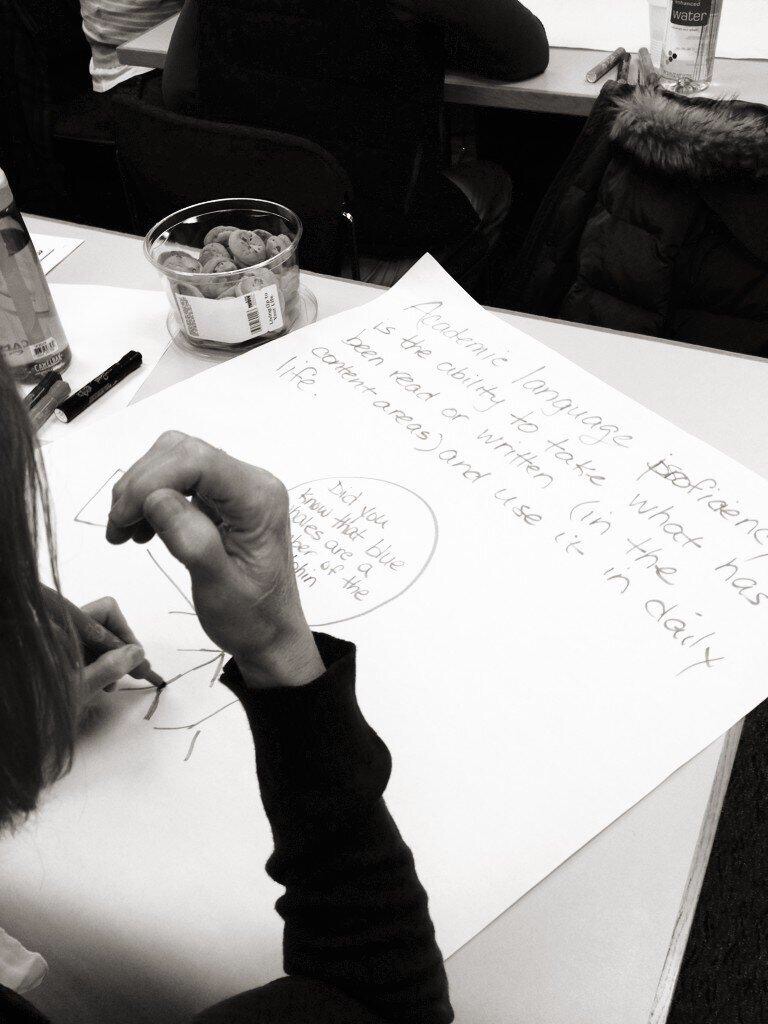 enhanced
water
Academic language proficiency
is the ability to take what has
been read or written (in the
content areas) and use it in daily
life.
Did you
know that blue
hales are a
ber of the
phin
Living Up to
Your Life.
CAMELBAK